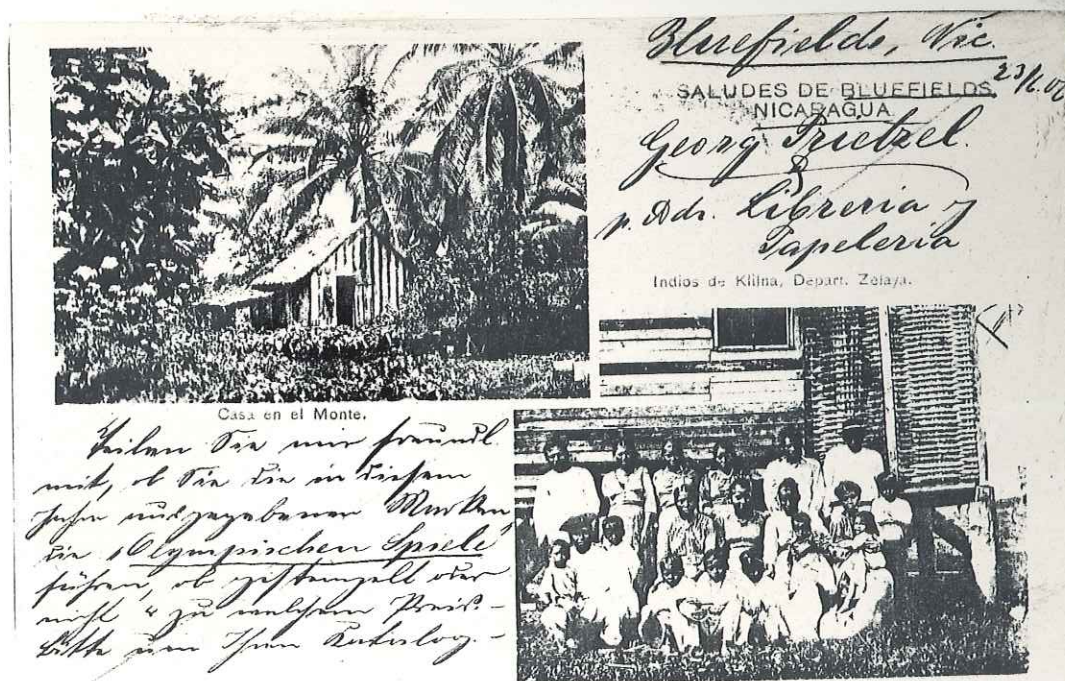 Bluefields, Nic.
SALUDES DE BLUEFIELDS
NICARAGUA
Georg
p. Adr. Libreria y
Papeleria
Indios de Kilina, Depart. Zelaya.
Casa en el Monte.
Teilen Sie mir freundl.
mit, ob Sie die in diesem
Jahr ausgegebenen Marken,
die "Olympischen Spiele"
führen, ob gestempelt oder
nicht & zu welchem Preis.-
Bitte um Ihren Katalog.-